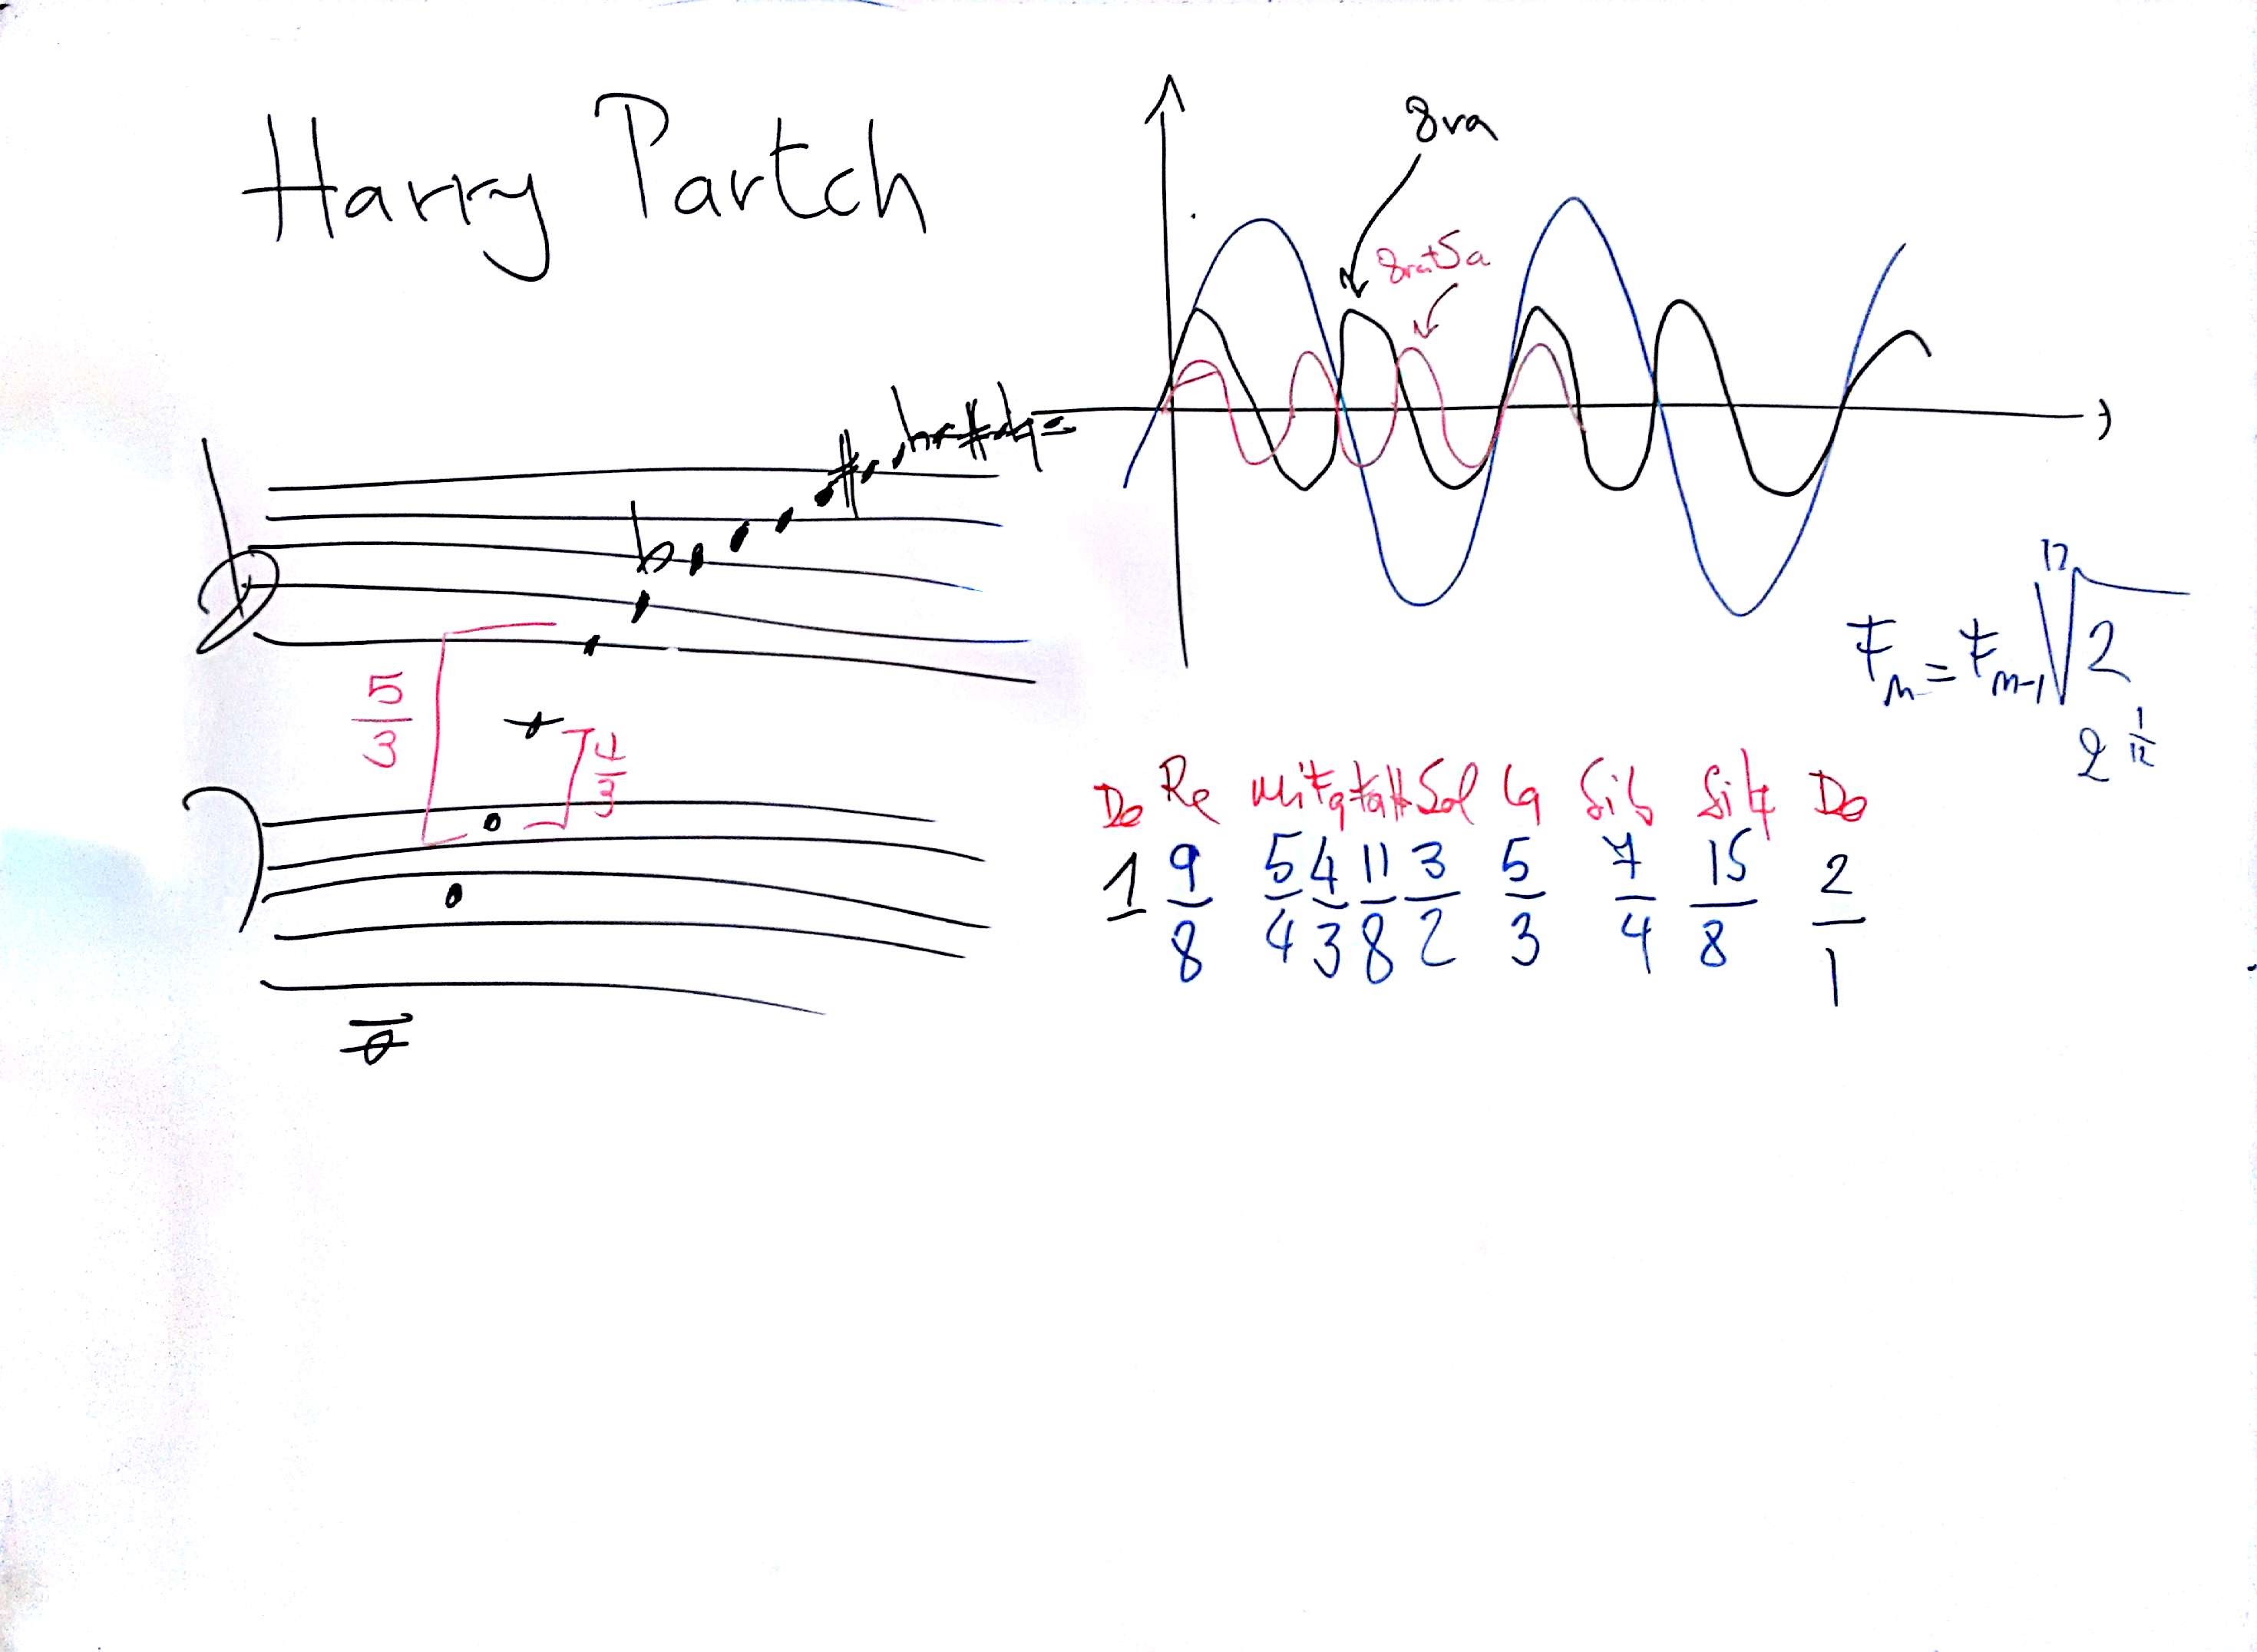 Harry Partch
8va
8va+5a
5/3
4/3
Fn = Fn-1 ¹²√2
2^1/12
Do Re Mi Fa Fa# Sol La Si♭ Si♮ Do
1 9/8 5/4 4/3 11/8 3/2 5/3 7/4 15/8 2/1